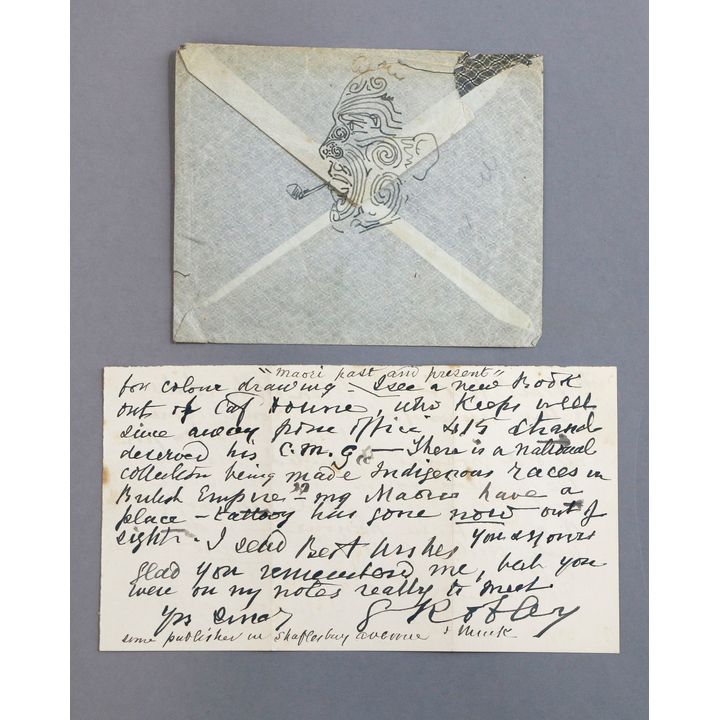 "Maori past and present"
for colour drawing - I see a new Book
out of Capt Donne, who keeps well
since away from office 415 Strand
deserved his C.M.G - There is a national
collection being made Indigenous races in
British Empire" - my Maoris have a
place - tattooy has gone now out of
sight. I send Best wishes
glad you remembered me, both you
were on my notes really to meet
Yrs sincy G Robley
some publisher in Shaftesbury avenue I think